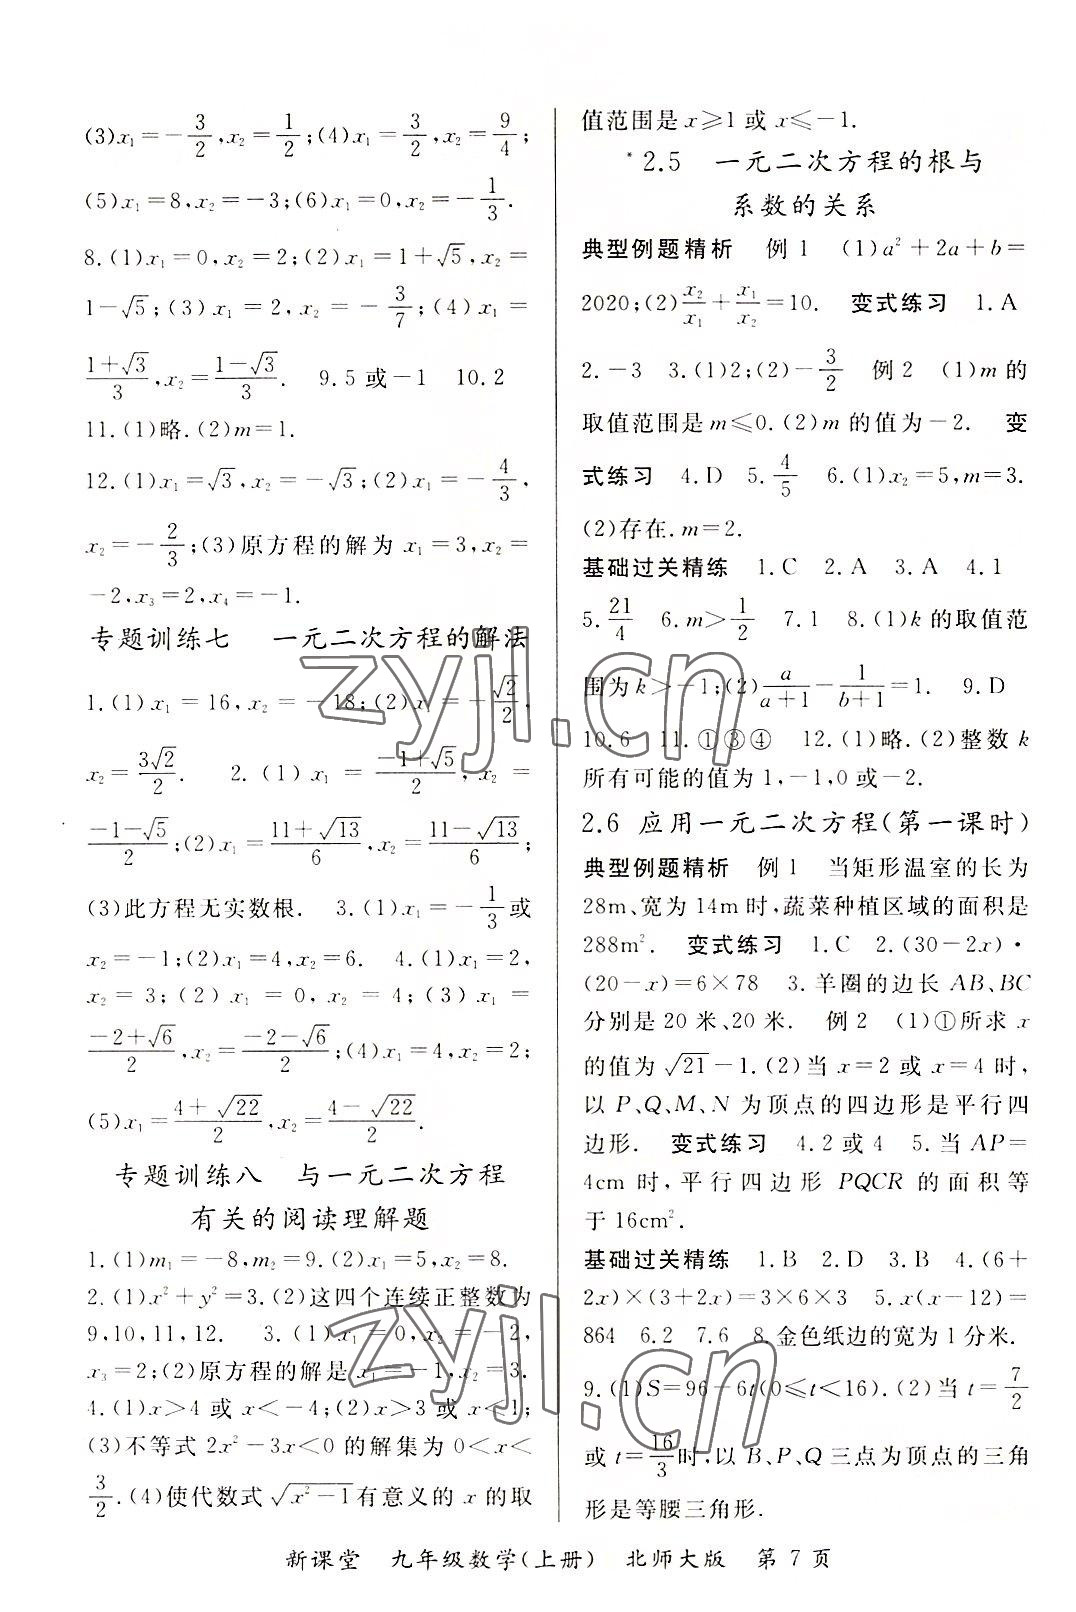 (3)x₁=-3/2,x₂=1/2;(4)x₁=3/2,x₂=9/4;
(5)x₁=8,x₂=-3;(6)x₁=0,x₂=-1/3.
8.(1)x₁=0,x₂=2;(2)x₁=1+√5,x₂=
1-√5;(3)x₁=2,x₂=-3/7;(4)x₁=
(1+√3)/3,x₂=(1-√3)/3. 9.5或-1 10.2
11.(1)略.(2)m=1.
12.(1)x₁=√3,x₂=-√3;(2)x₁=-4/3,
x₂=-2/3;(3)原方程的解为x₁=3,x₂=
-2,x₃=2,x₄=-1.
专题训练七 一元二次方程的解法
1.(1)x₁=16,x₂=-18;(2)x₁=-√2/2,
x₂=3√2/2. 2.(1)x₁=(-1+√5)/2,x₂=
(-1-√5)/2;(2)x₁=(11+√13)/6,x₂=(11-√13)/6;
(3)此方程无实数根. 3.(1)x₁=-1/3或
x₂=-1;(2)x₁=4,x₂=6. 4.(1)x₁=2,
x₂=3;(2)x₁=0,x₂=4;(3)x₁=
(-2+√6)/2,x₂=(-2-√6)/2;(4)x₁=4,x₂=2;
(5)x₁=(4+√22)/2,x₂=(4-√22)/2.
专题训练八 与一元二次方程
有关的阅读理解题
1.(1)m₁=-8,m₂=9.(2)x₁=5,x₂=8.
2.(1)x²+y²=3.(2)这四个连续正整数为
9,10,11,12. 3.(1)x₁=0,x₂=-2,
x₃=2;(2)原方程的解是x₁=-1,x₂=3.
4.(1)x>4或x<-4;(2)x>3或x<1;
(3)不等式2x²-3x<0的解集为0<x<
3/2.(4)使代数式√(x²-1)有意义的x的取
值范围是x≥1或x≤-1.
*2.5 一元二次方程的根与
系数的关系
典型例题精析 例1 (1)a²+2a+b=
2020;(2)x₂/x₁+x₁/x₂=10. 变式练习 1.A
2.-3 3.(1)2;(2)-3/2 例2 (1)m的
取值范围是m≤0.(2)m的值为-2. 变
式练习 4.D 5.4/5 6.(1)x₂=5,m=3.
(2)存在.m=2.
基础过关精练 1.C 2.A 3.A 4.1
5.21/4 6.m>1/2 7.1 8.(1)k的取值范
围为k>-1;(2)a/(a+1)-1/(b+1)=1. 9.D
10.6 11.①③④ 12.(1)略.(2)整数k
所有可能的值为1,-1,0或-2.
2.6 应用一元二次方程(第一课时)
典型例题精析 例1 当矩形温室的长为
28m、宽为14m时,蔬菜种植区域的面积是
288m². 变式练习 1.C 2.(30-2x)·
(20-x)=6×78 3.羊圈的边长AB、BC
分别是20米、20米. 例2 (1)①所求x
的值为√21-1.(2)当x=2或x=4时,
以P、Q、M、N为顶点的四边形是平行四
边形. 变式练习 4.2或4 5.当AP=
4cm时,平行四边形PQCR的面积等
于16cm².
基础过关精练 1.B 2.D 3.B 4.(6+
2x)×(3+2x)=3×6×3 5.x(x-12)=
864 6.2 7.6 8.金色纸边的宽为1分米.
9.(1)S=96-6t(0≤t<16).(2)当t=7/2
或t=16/3时,以B、P、Q三点为顶点的三角
形是等腰三角形.
新课堂 九年级数学(上册) 北师大版 第7页
zyjl.cn
zyjl.cn